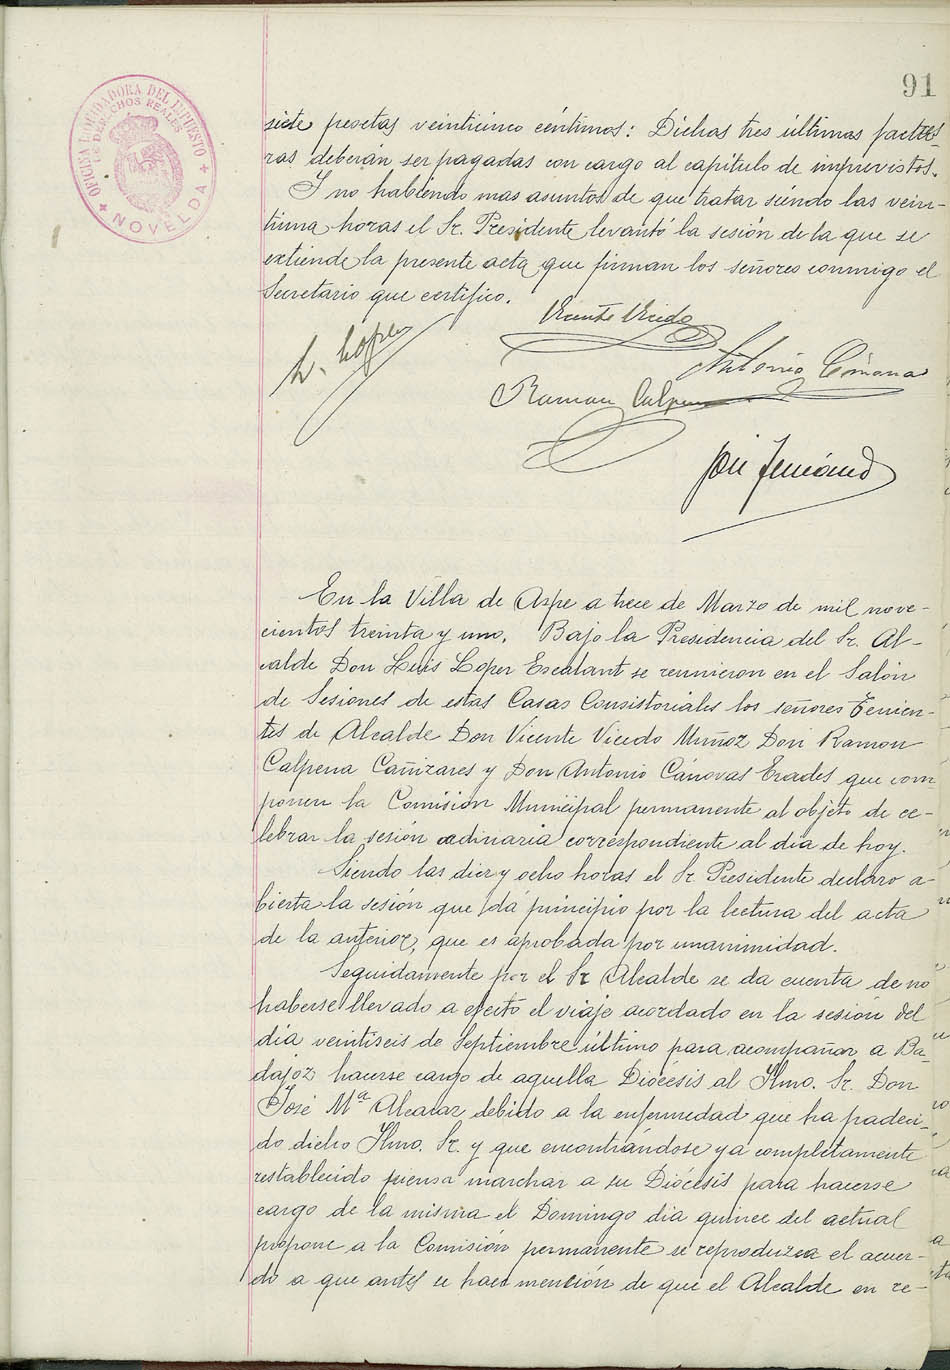 91
OFICINA LIQUIDADORA DEL IMPUESTO
DE DERECHOS REALES
NOVELDA
siete pesetas veinticinco céntimos: Dichas tres últimas factu-
ras deberán ser pagadas con cargo al capitulo de imprevistos.
Y no habiendo mas asuntos de que tratar siendo las vein-
tiuna horas el Sr. Presidente levantó la sesión de la que se
extiende la presente acta que firman los señores conmigo el
Secretario que certifico.
Vicente Vicedo
L. Lopez
Antonio Cánovas
Ramon Calpena
José
En la Villa de Aspe a trece de Marzo de mil nove-
cientos treinta y uno. Bajo la Presidencia del Sr. Al-
calde Don Luis Lopez Escalant se reunieron en el Salón
de Sesiones de estas Casas Consistoriales los señores Tenien-
tes de Alcalde Don Vicente Vicedo Muñoz Don Ramon
Calpena Cañizares y Don Antonio Cánovas Erades que com-
ponen la Comisión Municipal permanente al objeto de ce-
lebrar la sesión ordinaria correspondiente al dia de hoy.
Siendo las diez y ocho horas el Sr. Presidente declaro a-
bierta la sesión que dá principio por la lectura del acta
de la anterior, que es aprobada por unanimidad.
Seguidamente por el Sr Alcalde se da cuenta de no
haberse llevado a efecto el viaje acordado en la sesión del
dia veintiseis de Septiembre último para acompañar a Ba-
dajoz hacerse cargo de aquella Diócesis al Ilmo. Sr. Don
José Mª Alcaraz debido a la enfermedad que ha padeci-
do dicho Ilmo. Sr. y que encontrándose ya completamente
restablecido piensa marchar a su Diócesis para hacerse
cargo de la misma el Domingo dia quince del actual
propone a la Comisión permanente se reproduzca el acuer-
do a que antes se hace mención de que el Alcalde en re-